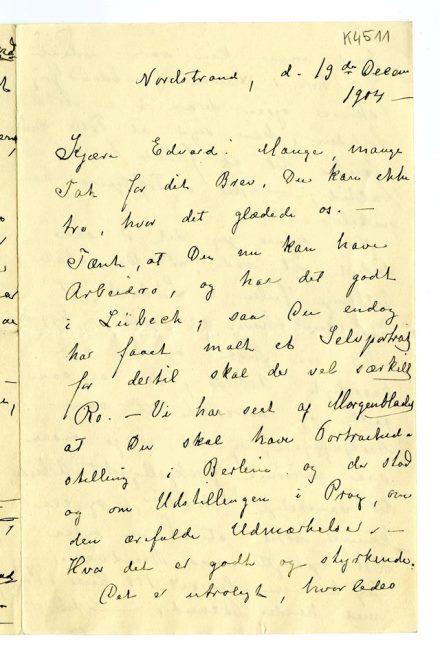 K4511
Nordstrand, d. 19de Decem
1904 —
Kjære Edvard! Mange, mange
Tak for dit Brev, Du kan ikke
tro, hvor det glædede os. —
Tænk, at Du nu kan have
Arbeidsro, og har det godt
i Lübeck, saa Du endog
har faaet malt et Selvportræt
for dertil skal der vel særskilt
Ro. — Vi har seet af Morgenbladet
at Du skal have Portrætud-
stilling i Berlin og der stod
og om Udstillingen i Prag, om
den ærefulde Udmærkelse, —
Hvor det er godt og styrkende.
Det er utroligt, hvorledes